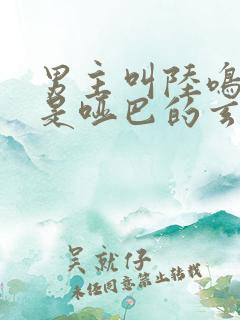 男主叫陸鳴
是啞巴的玄
吴就仔
未经同意禁止转载